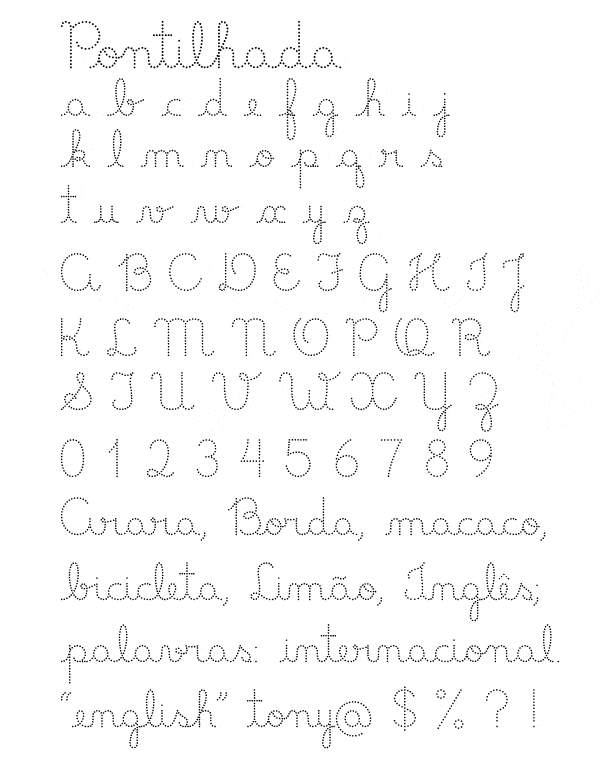 Pontilhada
a b c d e f g h i j
k l m n o p q r s
t u v w x y z
A B C D E F G H I J
K L M N O P Q R
S T U V W X Y Z
0 1 2 3 4 5 6 7 8 9
Arara, Borda, macaco,
bicicleta, Limão, Inglês;
palavras: internacional.
“english” tony@ $ % ? !